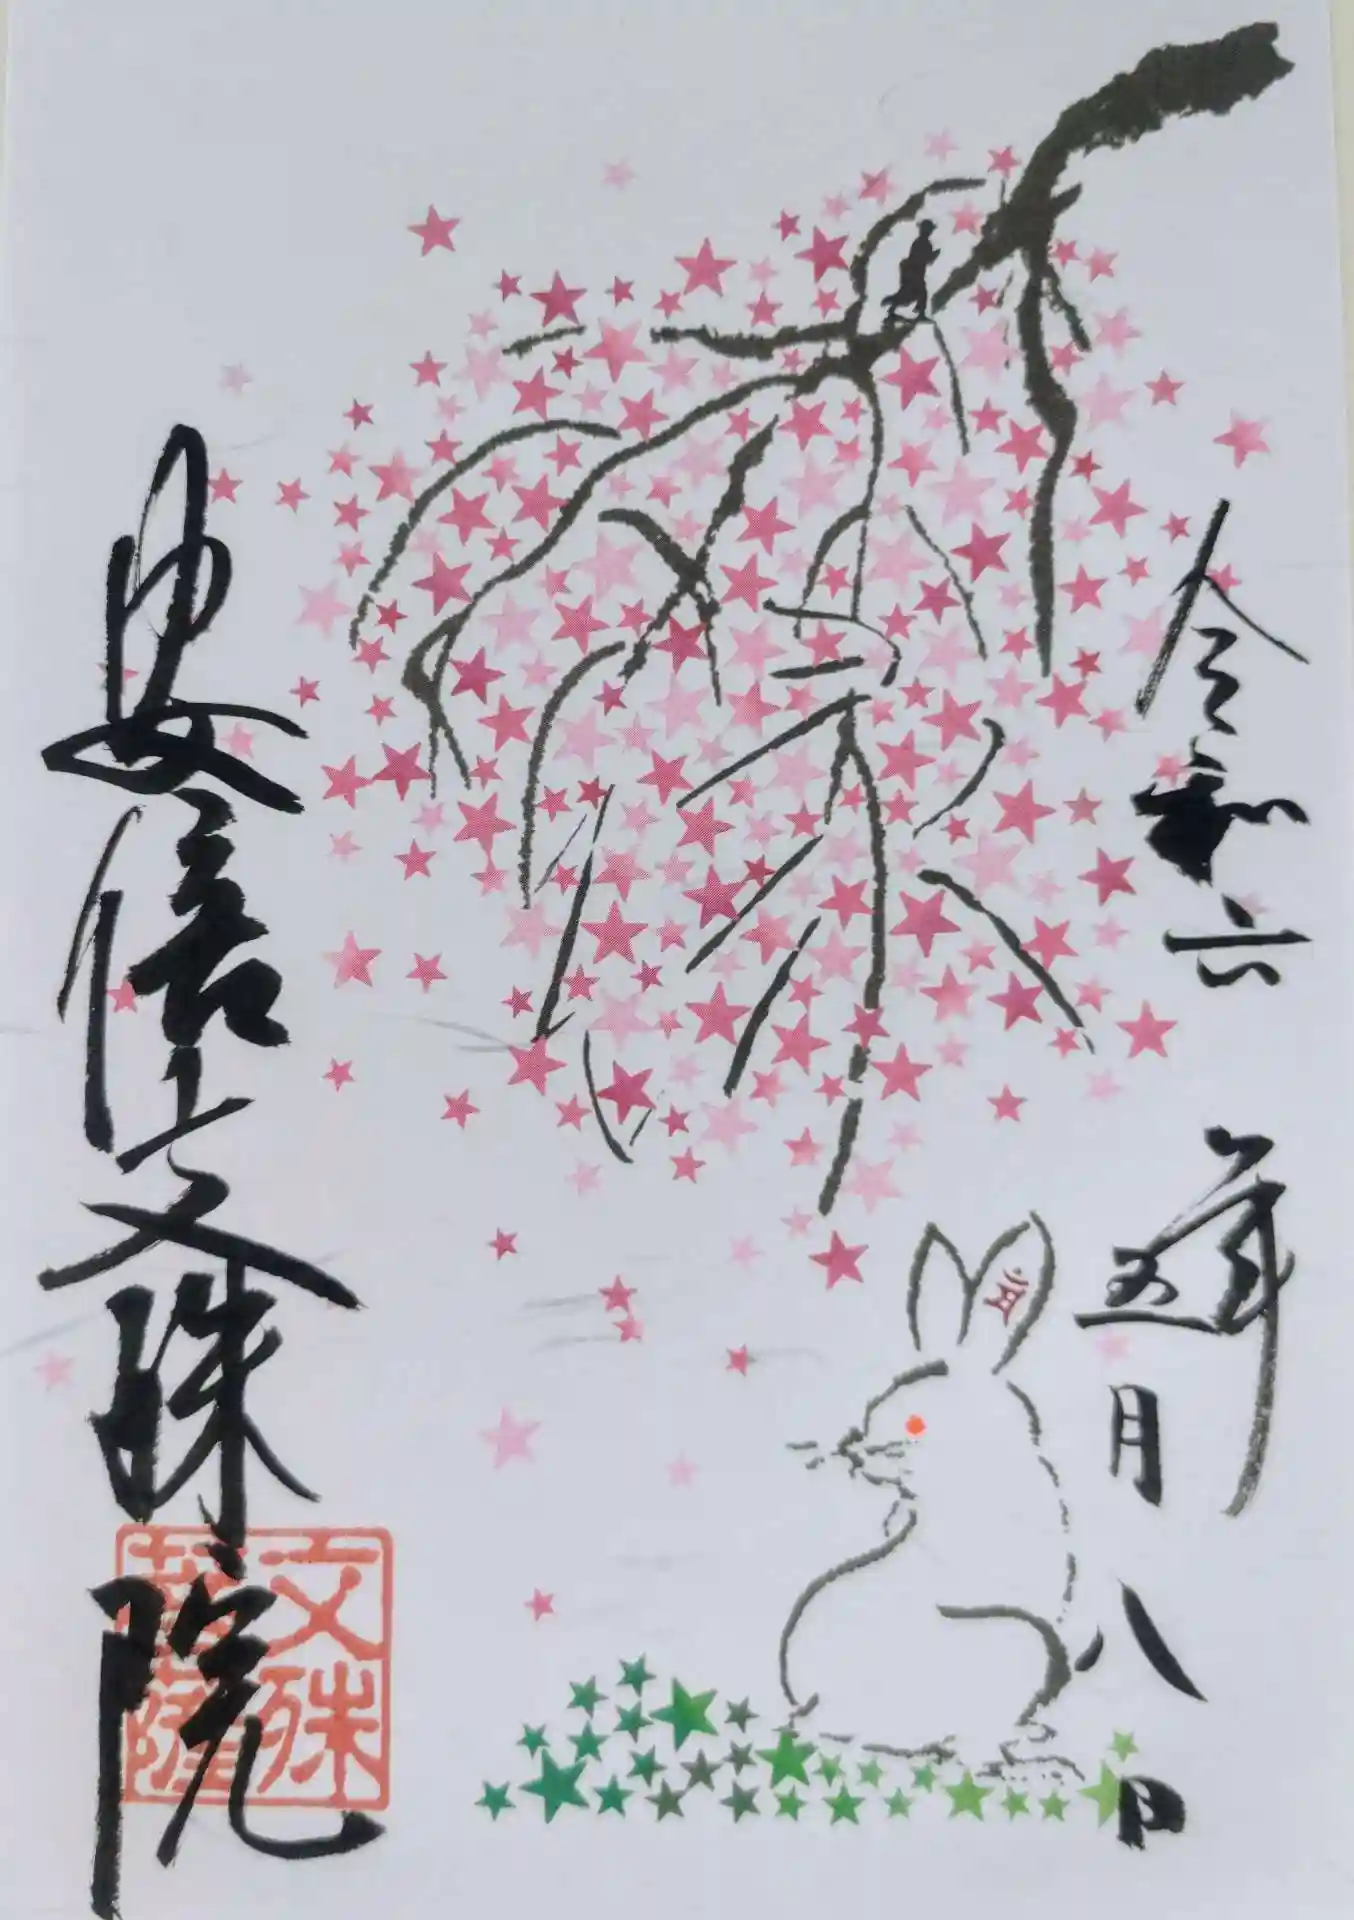 令和六年
五月八日
安倍文殊院
文殊
菩薩